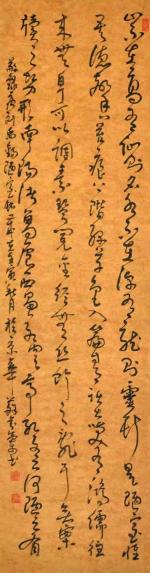 山不在高有仙則名水不在深有龍則靈斯是陋室惟
吾德馨苔痕上階綠草色入簾青談笑有鴻儒往
來無白丁可以調素琴閱金經無絲竹之亂耳無案
牘之勞形南陽諸葛廬西蜀子雲亭孔子云何陋之有
劉禹錫陋室銘 寅秋月於京華 書